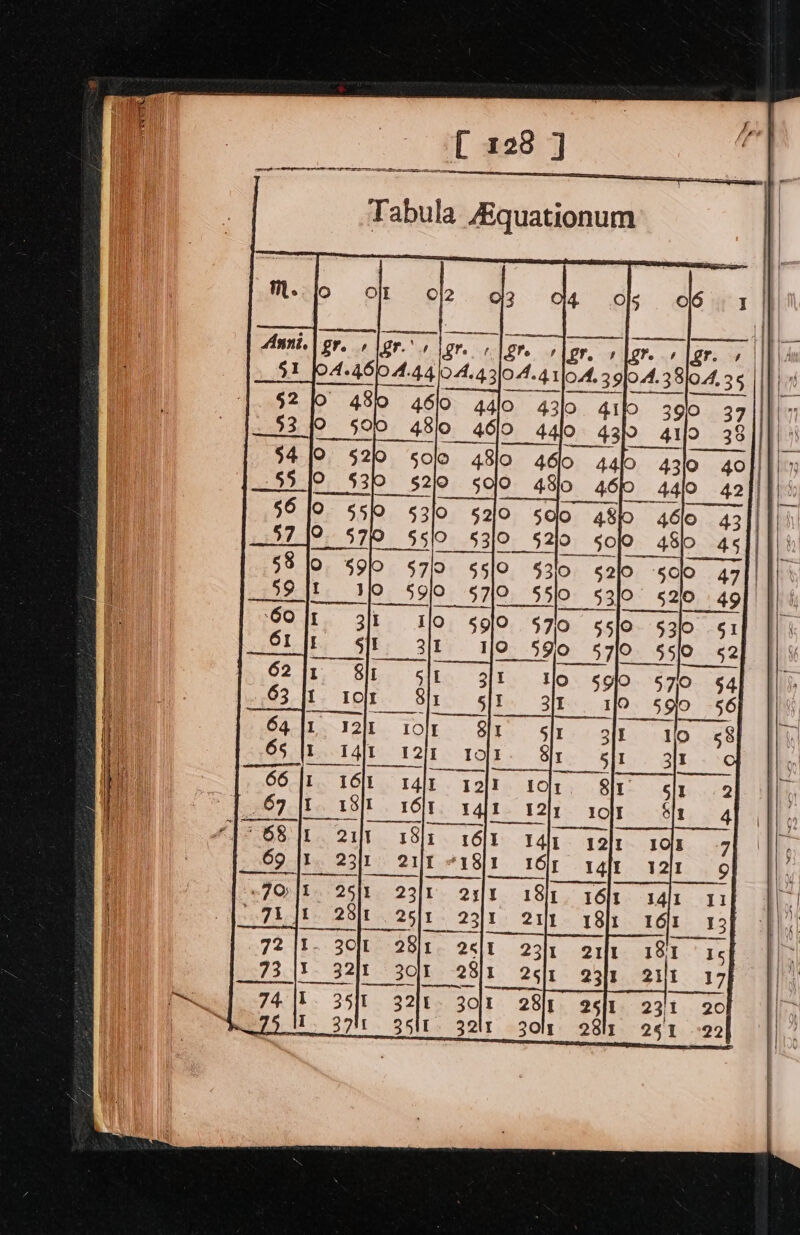 [ 128 ]
Tabula Æquationum
m. 0 0 1 0 2 0 3 0 4 0 5 0 6 1
Anni. gr. ′ gr. ′ gr. ′ gr. ′ gr. ′ gr. ′ gr. ′
51 0A.46 0A.44 0A.43 0A.41 0A.39 0A.38 0A.35
52 0 48 0 46 0 44 0 43 0 41 0 39 0 37
53 0 50 0 48 0 46 0 44 0 43 0 41 0 38
54 0 52 0 50 0 48 0 46 0 44 0 43 0 40
55 0 53 0 52 0 50 0 48 0 46 0 44 0 42
56 0 55 0 53 0 52 0 50 0 48 0 46 0 43
57 0 57 0 55 0 53 0 52 0 50 0 48 0 45
58 0 59 0 57 0 55 0 53 0 52 0 50 0 47
59 1 1 0 59 0 57 0 55 0 53 0 52 0 49
60 1 3 1 1 0 59 0 57 0 55 0 53 0 51
61 1 5 1 3 1 1 0 59 0 57 0 55 0 52
62 1 8 1 5 1 3 1 1 0 59 0 57 0 54
63 1 10 1 8 1 5 1 3 1 1 0 59 0 56
64 1 12 1 10 1 8 1 5 1 3 1 1 0 58
65 1 14 1 12 1 10 1 8 1 5 1 3 1 0
66 1 16 1 14 1 12 1 10 1 8 1 5 1 2
67 1 18 1 16 1 14 1 12 1 10 1 8 1 4
68 1 21 1 18 1 16 1 14 1 12 1 10 1 7
69 1 23 1 21 1 18 1 16 1 14 1 12 1 9
70 1 25 1 23 1 21 1 18 1 16 1 14 1 11
71 1 28 1 25 1 23 1 21 1 18 1 16 1 13
72 1 30 1 28 1 25 1 23 1 21 1 18 1 15
73 1 32 1 30 1 28 1 25 1 23 1 21 1 17
74 1 35 1 32 1 30 1 28 1 25 1 23 1 20
75 1 37 1 35 1 32 1 30 1 28 1 25 1 22